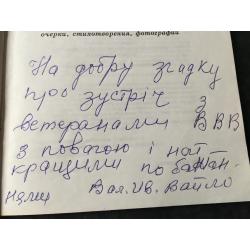 очерки, стихотворения, фотографии
На добру згадку
про зустріч з
ветеранами ВВВ
з повагою і най-
кращими побажан-
нями Вал. Ив. Вайло